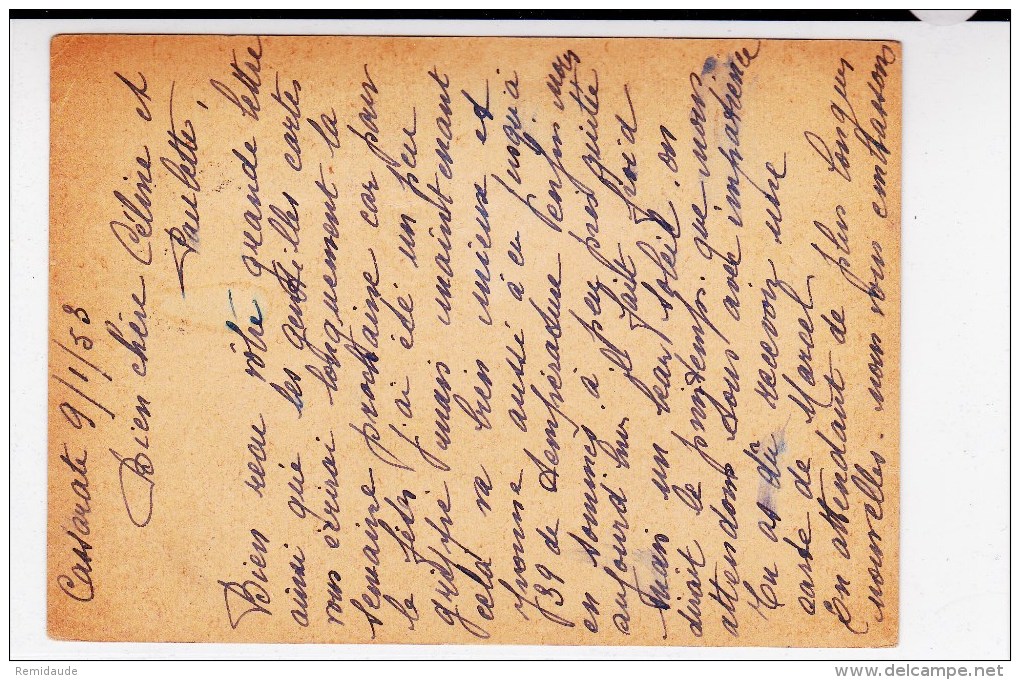 Cassarate 9/1/53
Bien chère Céline et
Paulette,
Bien recu vôtre grande lettre
ainsi que les gentilles cartes
vous écrirai longuement la
semaine prochaine car pour
le fêtes j'ai été un peu
grippé mais maintenant
cela va bien mieux et
Yvonne aussi à eu jusqu'à
39 de température enfin nous
en sommes à peu près quitte
aujourd'hui il fait froid
mais un beau soleil on
dirait le printemps que nous
attendons tous avec impatience
En as tu recevoir une
carte de Marcel
En attendant de plus longues
nouvelles nous vous embrassons
Remidaude
www.delcampe.net